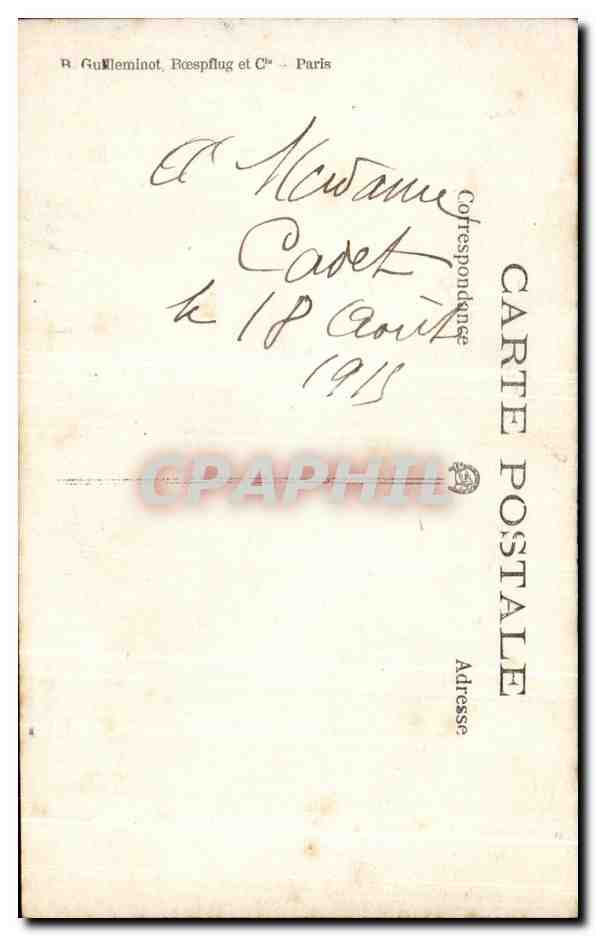 R. Guilleminot, Bœspflug et Cie - Paris
A Madame
Cadet
le 18 Août
1915
CARTE POSTALE
Correspondance
Adresse
CPAPHIL